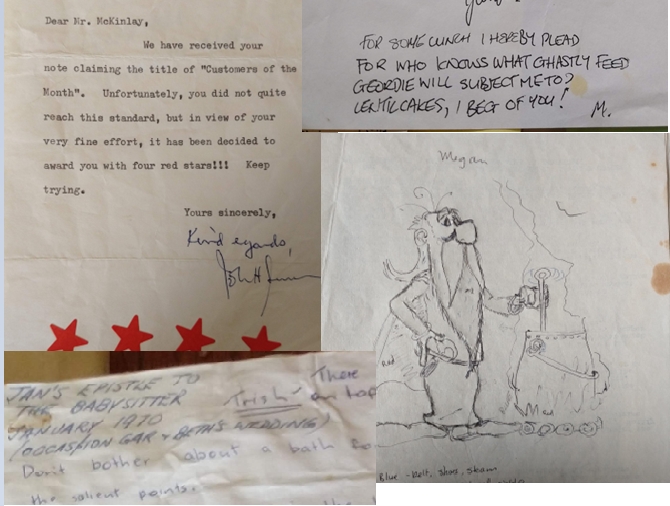 Dear Mr. McKinlay,
We have received your
note claiming the title of "Customers of the
Month".   Unfortunately, you did not quite
reach this standard, but in view of your
very fine effort, it has been decided to
award you with four red stars!!!   Keep
trying.
Yours sincerely,
Kind regards,
John H
FOR SOME LUNCH I HEREBY PLEAD
FOR WHO KNOWS WHAT GHASTLY FEED
GEORDIE WILL SUBJECT ME TO?
LENTIL CAKES, I BEG OF YOU!
M.
Megan
and
Blue - belt, shoes, steam
JAN'S EPISTLE TO
THE BABYSITTER
JANUARY 1970
(OCCASION GAR & BETH'S WEDDING)
Trish
There
on top
Don't bother about a bath for
the salient points.